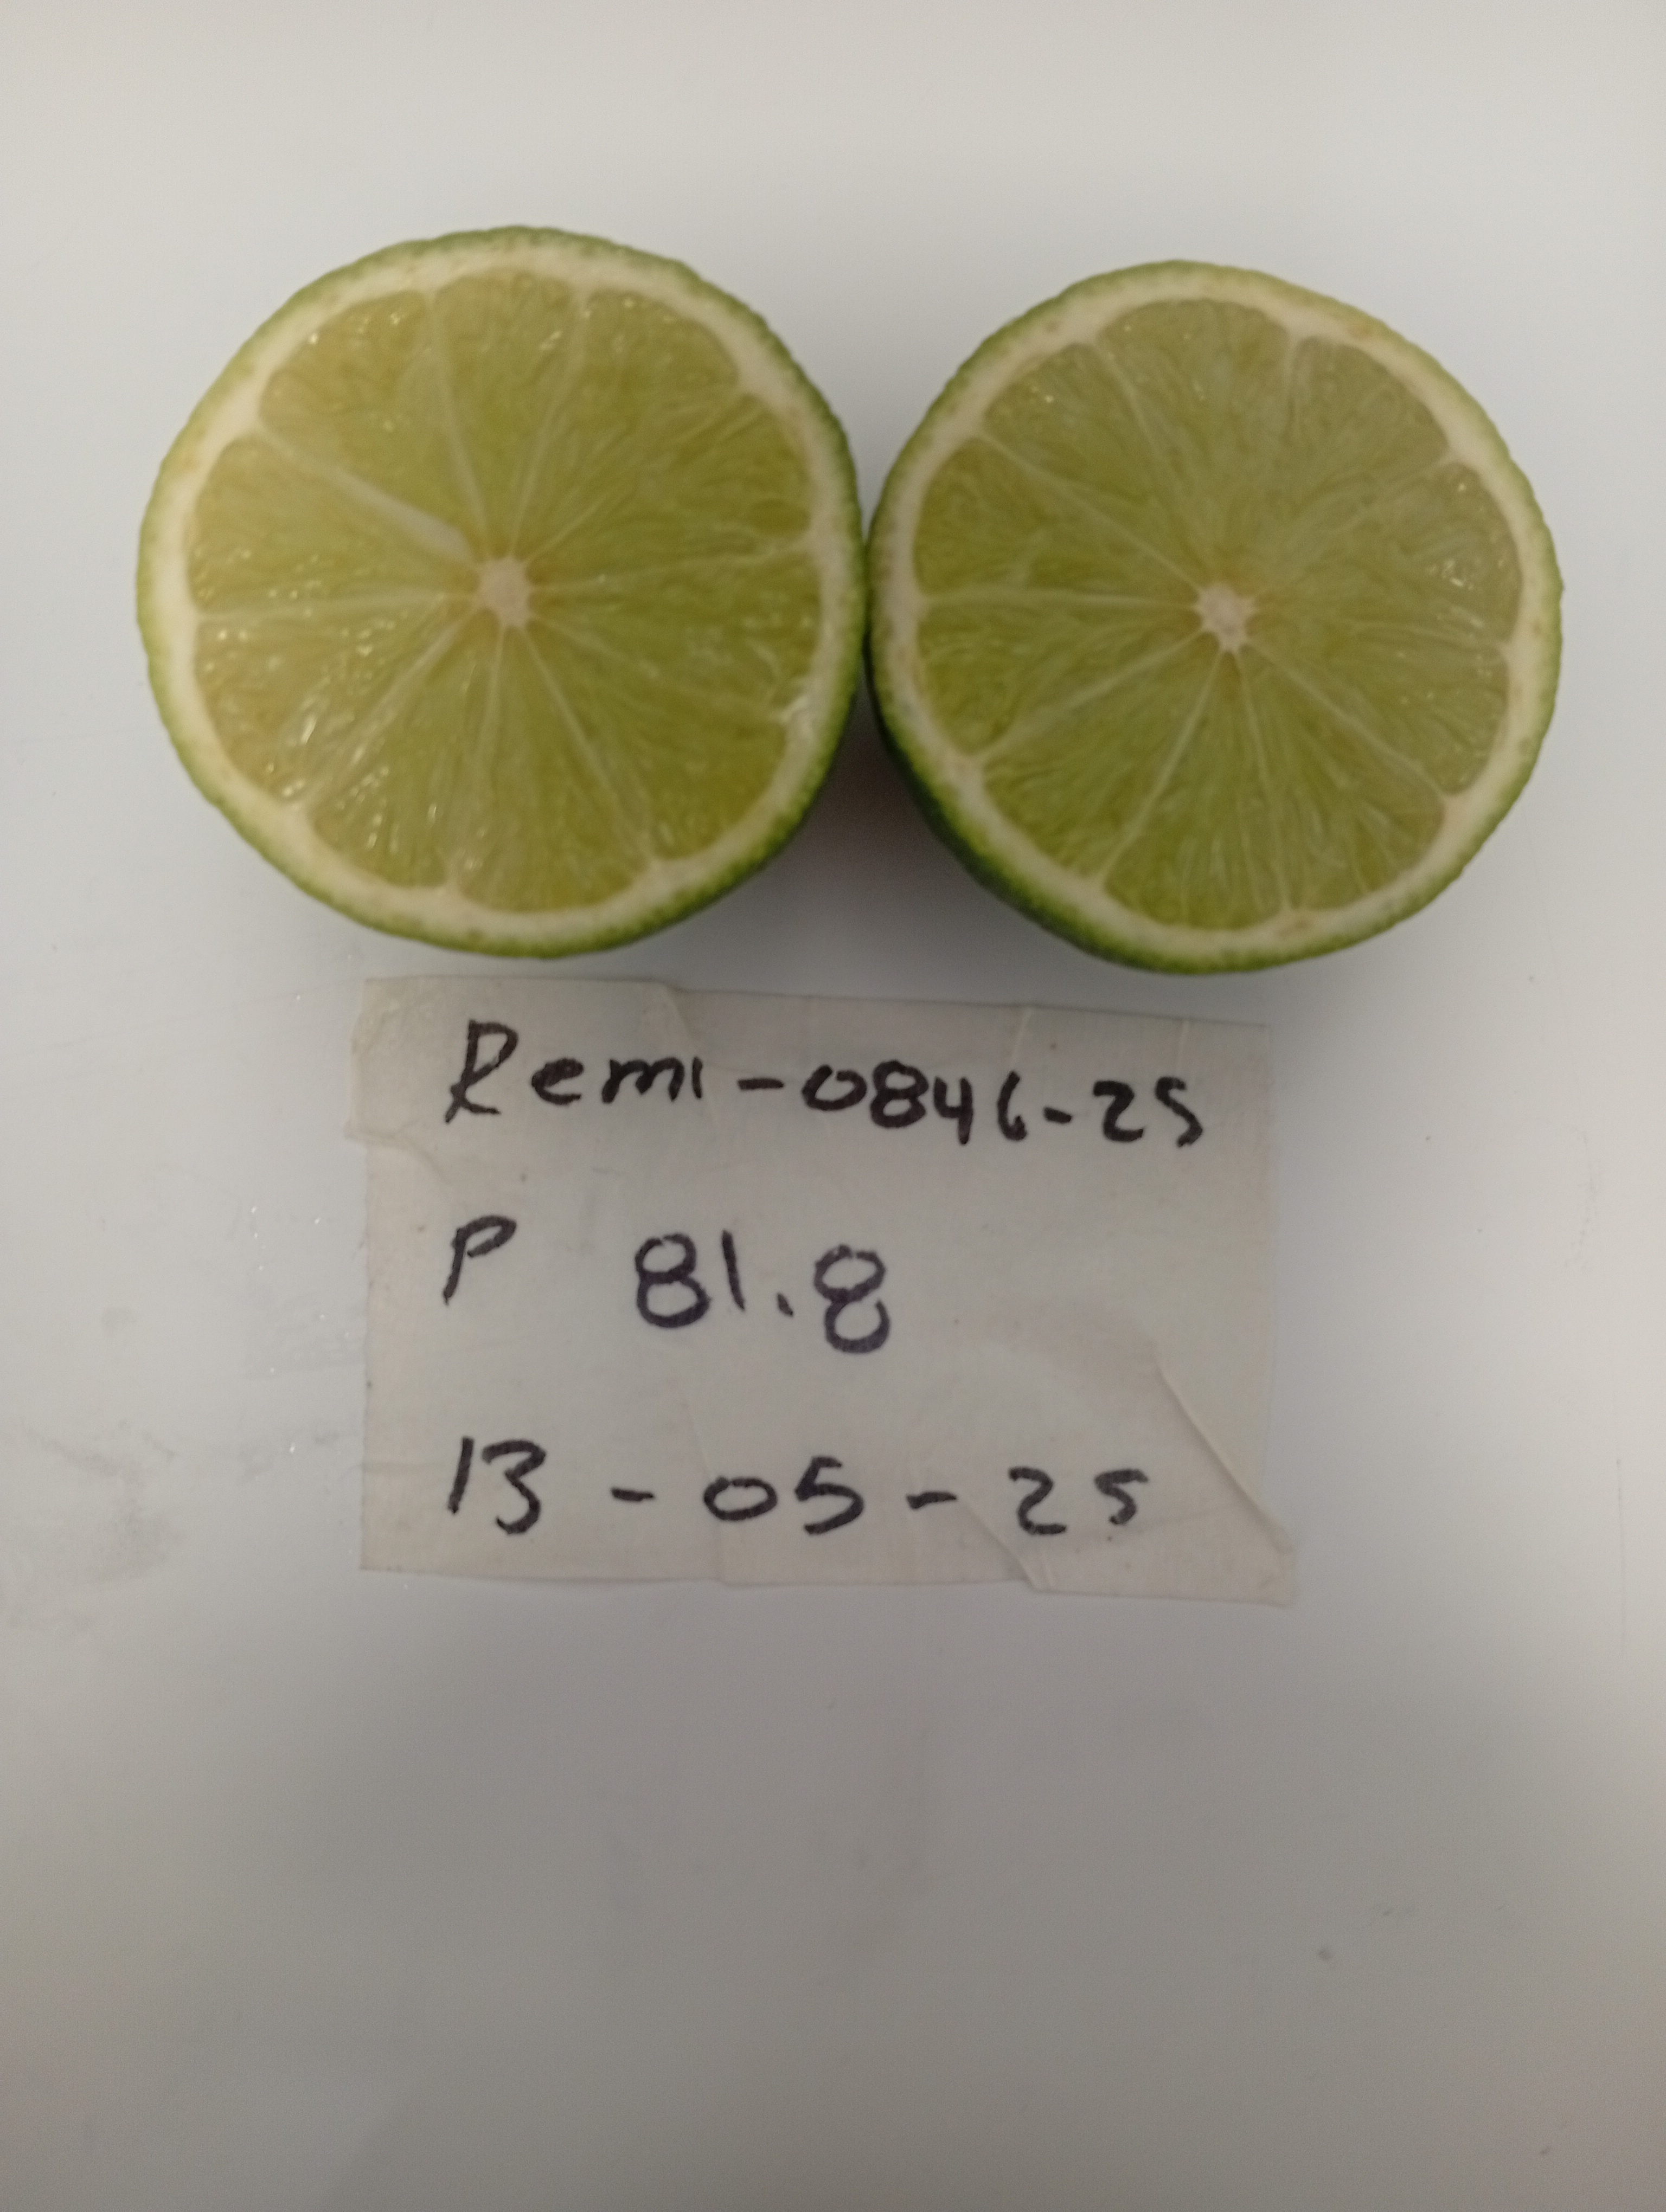 Remi-0846-25
P 81.8
13-05-25